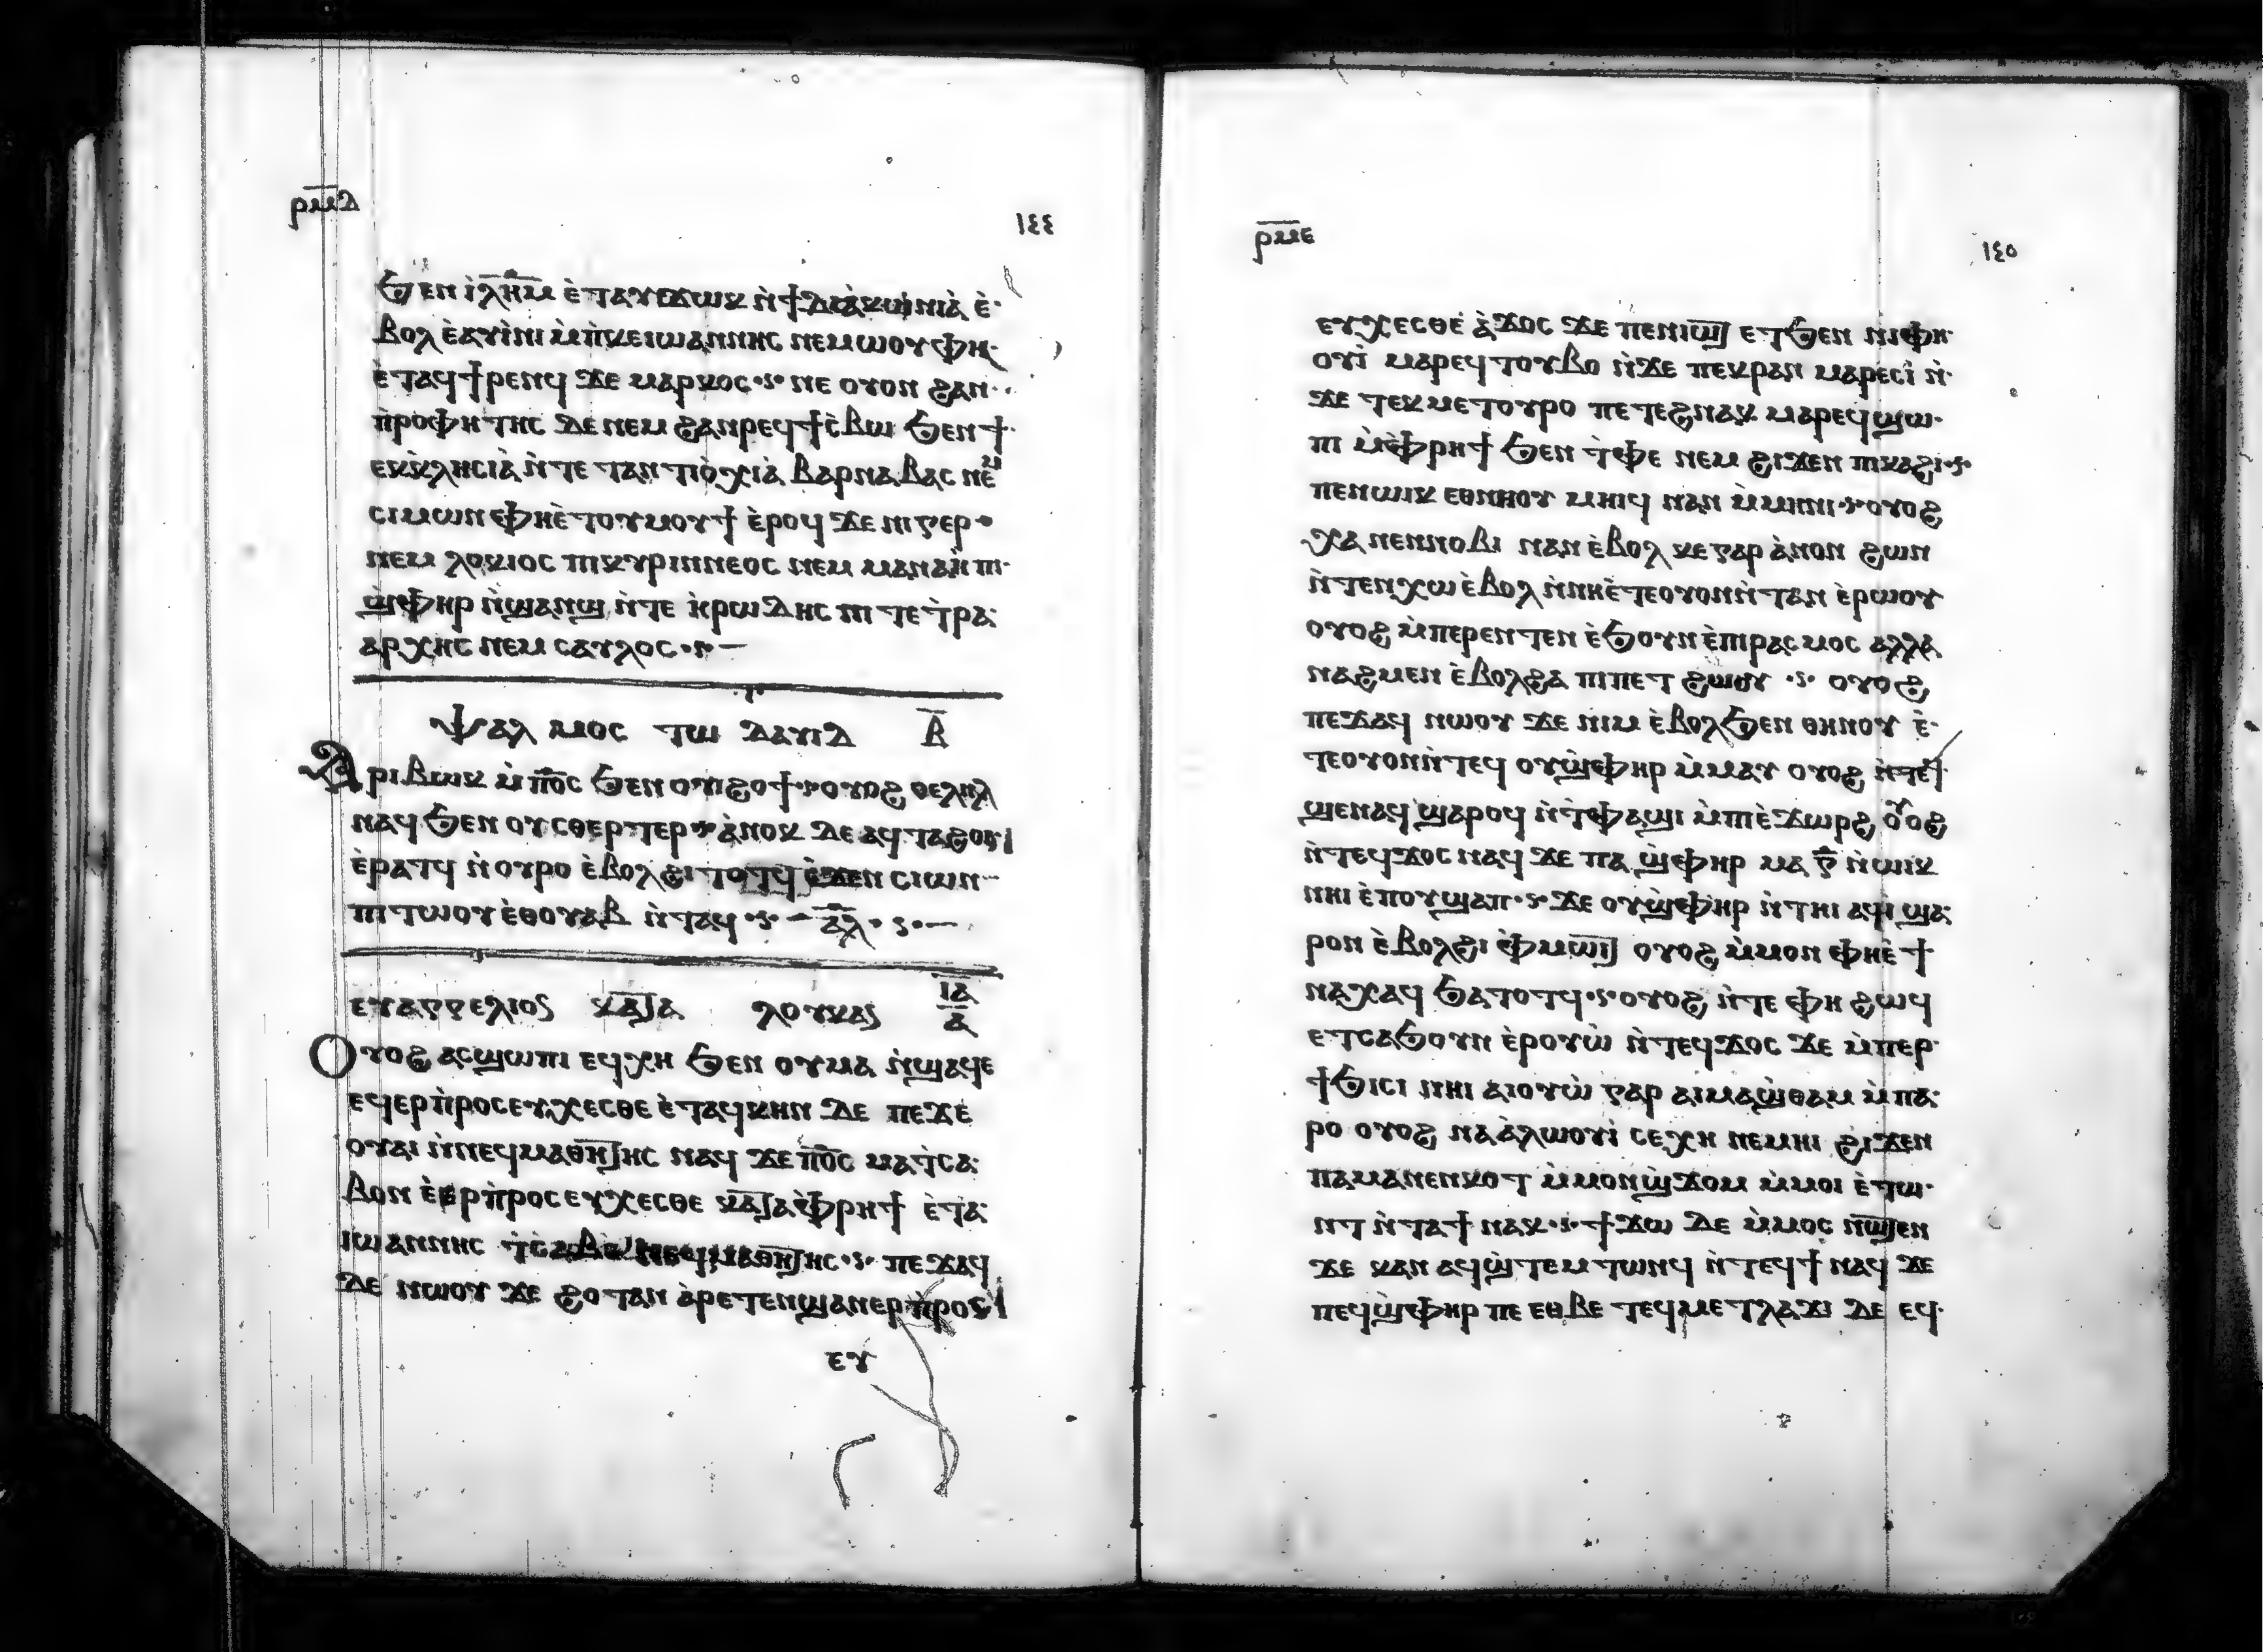 ⲣⲙ̅ⲇ
١٤٤
ϧⲉⲛ ⲓ̀ⲗ̅ⲏ̅ⲙ̅ ⲉ̀ⲧⲁⲩϫⲱⲕ ⲛ̀ϯⲇⲓⲁ̀ⲕⲱⲛⲓⲁ̀ ⲉ̀
ⲃⲟⲗ ⲉ̀ⲁⲩⲓ̀ⲛⲓ ⲙ̀ⲡ̀ⲕⲉⲓⲱⲁⲛⲛⲏⲥ ⲛⲉⲙⲱⲟⲩ ⲫⲏ
ⲉ̀ⲧⲁϥϯⲣⲉⲛϥ ϫⲉ ⲙⲁⲣⲕⲟⲥ ⲛⲉ ⲟⲩⲟⲛ ϩⲁⲛ
ⲡ̀ⲣⲟⲫⲏⲧⲏⲥ ⲇⲉ ⲛⲉⲙ ϩⲁⲛⲣⲉϥϯⲥ̀ⲃⲱ ϧⲉⲛ ϯ
ⲉⲕⲕ̀ⲗⲏⲥⲓⲁ̀ ⲛ̀ⲧⲉ ⲧⲁⲛⲧⲓⲟ̀ⲭⲓⲁ̀ ⲃⲁⲣⲛⲁⲃⲁⲥ ⲛⲉⲙ
ⲥⲓⲙⲱⲛ ⲫⲏⲉ̀ⲧⲟⲩⲙⲟⲩϯ ⲉ̀ⲣⲟϥ ϫⲉ ⲛⲓⲅⲉⲣ
ⲛⲉⲙ ⲗⲟⲕⲓⲟⲥ ⲡⲓⲕⲩⲣⲓⲛⲛⲉⲟⲥ ⲛⲉⲙ ⲙⲁⲛⲁⲏ̀ ⲡⲓ
ϣ̀ⲫⲏⲣ ⲛ̀ϣⲁⲛϣ ⲛ̀ⲧⲉ ⲏ̀ⲣⲱⲇⲏⲥ ⲡⲓⲧⲉⲧ̀ⲣⲁ
ⲁⲣⲭⲏⲥ ⲛⲉⲙ ⲥⲁⲩⲗⲟⲥ
ⲯⲁⲗⲙⲟⲥ ⲧⲱ ⲇⲁⲩⲓⲇ ⲃ̅
Ⲁⲣⲓⲃⲱⲕ ⲙ̀ⲡ̅ⲟ̅ⲥ ϧⲉⲛ ⲟⲩϩⲟϯ ⲟⲩⲟϩ ⲑⲉⲗⲏⲗ
ⲛⲁϥ ϧⲉⲛ ⲟⲩⲥⲑⲉⲣⲧⲉⲣ ⲁ̀ⲛⲟⲕ ⲇⲉ ⲁϥⲧⲁϩⲟⲓ
ⲉ̀ⲣⲁⲧϥ ⲛ̀ⲟⲩⲣⲟ ⲉ̀ⲃⲟⲗ ϩⲓⲧⲟⲧϥ ⲉ̀ϫⲉⲛ ⲥⲓⲱⲛ
ⲡⲓⲧⲱⲟⲩ ⲉ̀ⲑⲟⲩⲁⲃ ⲛ̀ⲧⲁϥ ⲁ̅ⲗ̅
ⲉⲩⲁⲅⲅⲉⲗⲓⲟⲥ ⲕⲁⲧⲁ ⲗⲟⲩⲕⲁⲥ ⲓ̅ⲁ̅ ⲁ̅
Ⲟⲩⲟϩ ⲁⲥϣⲱⲡⲓ ⲉϥⲭⲏ ϧⲉⲛ ⲟⲩⲙⲁ ⲛ̀ϣⲁϥⲉ
ⲉϥⲉⲣⲡ̀ⲣⲟⲥⲉⲩⲭⲉⲥⲑⲉ ⲉ̀ⲧⲁϥⲕⲏⲛ ⲇⲉ ⲡⲉϫⲉ
ⲟⲩⲁⲓ ⲛ̀ⲛⲉϥⲙⲁⲑⲏⲧⲏⲥ ⲛⲁϥ ϫⲉ ⲡ̅ⲟ̅ⲥ ⲙⲁⲧ̀ⲥⲁ
ⲃⲟⲛ ⲉ̀ⲉⲣⲡ̀ⲣⲟⲥⲉⲩⲭⲉⲥⲑⲉ ⲕⲁⲧⲁ ⲫ̀ⲣⲏϯ ⲉ̀ⲧⲁ
ⲓⲱⲁⲛⲛⲏⲥ ⲧ̀ⲥⲁⲃⲉ ⲛⲉϥⲙⲁⲑⲏⲧⲏⲥ ⲡⲉϫⲁϥ
ⲇⲉ ⲛⲱⲟⲩ ϫⲉ ϩⲟⲧⲁⲛ ⲁ̀ⲣⲉⲧⲉⲛϣⲁⲛⲉⲣⲡ̀ⲣⲟⲥ
ⲉⲩ
ⲣⲙ̅ⲉ
١٤٥
ⲉⲩⲭⲉⲥⲑⲉ ⲁ̀ϫⲟⲥ ϫⲉ ⲡⲉⲛⲓⲱⲧ ⲉⲧϧⲉⲛ ⲛⲓⲫⲏ
ⲟⲩⲓ̀ ⲙⲁⲣⲉϥⲧⲟⲩⲃⲟ ⲛ̀ϫⲉ ⲡⲉⲕⲣⲁⲛ ⲙⲁⲣⲉⲥⲓ̀ ⲛ̀
ϫⲉ ⲧⲉⲕⲙⲉⲧⲟⲩⲣⲟ ⲡⲉⲧⲉϩⲛⲁⲕ ⲙⲁⲣⲉϥϣⲱ
ⲡⲓ ⲙ̀ⲫ̀ⲣⲏϯ ϧⲉⲛ ⲧ̀ⲫⲉ ⲛⲉⲙ ϩⲓϫⲉⲛ ⲡⲓⲕⲁϩⲓ
ⲡⲉⲛⲱⲓⲕ ⲉⲑⲛⲏⲟⲩ ⲙⲏⲓϥ ⲛⲁⲛ ⲙ̀ⲙⲏⲛⲓ ⲟⲩⲟϩ
ⲭⲁ ⲛⲉⲛⲛⲟⲃⲓ ⲛⲁⲛ ⲉ̀ⲃⲟⲗ ⲕⲉ ⲅⲁⲣ ⲁ̀ⲛⲟⲛ ϩⲱⲛ
ⲛ̀ⲧⲉⲛⲭⲱ ⲉ̀ⲃⲟⲗ ⲛ̀ⲛⲏⲉ̀ⲧⲉⲟⲩⲟⲛⲛ̀ⲧⲁⲛ ⲉ̀ⲣⲱⲟⲩ
ⲟⲩⲟϩ ⲙ̀ⲡⲉⲣⲉⲛⲧⲉⲛ ⲉ̀ϧⲟⲩⲛ ⲉ̀ⲡⲓⲣⲁⲥⲙⲟⲥ ⲁⲗⲗⲁ
ⲛⲁϩⲙⲉⲛ ⲉ̀ⲃⲟⲗϩⲁ ⲡⲓⲡⲉⲧϩⲱⲟⲩ ⲟⲩⲟϩ
ⲡⲉϫⲁϥ ⲛⲱⲟⲩ ϫⲉ ⲛⲓⲙ ⲉ̀ⲃⲟⲗϧⲉⲛ ⲑⲏⲛⲟⲩ ⲉ̀
ⲧⲉⲟⲩⲟⲛⲛ̀ⲧⲉϥ ⲟⲩϣ̀ⲫⲏⲣ ⲙ̀ⲙⲁⲩ ⲟⲩⲟϩ ⲛ̀ⲧⲉϥ
ϣⲉⲛⲁϥ ϣⲁⲣⲟϥ ⲛ̀ⲧ̀ⲫⲁϣⲓ ⲙ̀ⲡⲓⲉ̀ϫⲱⲣϩ ⲟⲩⲟϩ
ⲛ̀ⲧⲉϥϫⲟⲥ ⲛⲁϥ ϫⲉ ⲡⲁϣ̀ⲫⲏⲣ ⲙⲁ ⲅ̅ ⲛ̀ⲱⲓⲕ
ⲛⲏⲓ ⲉ̀ⲡⲟⲩϣⲁⲡ ϫⲉ ⲟⲩϣ̀ⲫⲏⲣ ⲛ̀ⲧⲏⲓ ⲁϥⲓ̀ ϣⲁ
ⲣⲟⲛ ⲉ̀ⲃⲟⲗϩⲓ ⲫ̀ⲙⲱⲓⲧ ⲟⲩⲟϩ ⲙ̀ⲙⲟⲛ ⲫⲏⲉ̀ϯ
ⲛⲁⲭⲁϥ ϧⲁⲧⲟⲧϥ ⲟⲩⲟϩ ⲛ̀ⲧⲉ ⲫⲏ ϩⲱϥ
ⲉⲧⲥⲁϧⲟⲩⲛ ⲉ̀ⲣⲟⲩⲱ̀ ⲛ̀ⲧⲉϥϫⲟⲥ ϫⲉ ⲙ̀ⲡⲉⲣ
ϯϧⲓⲥⲓ ⲛⲏⲓ ⲁⲓⲟⲩⲱ̀ ⲅⲁⲣ ⲁⲓⲙⲁϣ̀ⲑⲁⲙ ⲙ̀ⲡⲁ
ⲣⲟ ⲟⲩⲟϩ ⲛⲁⲁ̀ⲗⲱⲟⲩⲓ̀ ⲥⲉⲭⲏ ⲛⲉⲙⲏⲓ ϩⲓϫⲉⲛ
ⲡⲁⲙⲁⲛⲉⲛⲕⲟⲧ ⲙ̀ⲙⲟⲛϣ̀ϫⲟⲙ ⲙ̀ⲙⲟⲓ ⲉ̀ⲧⲱ
ⲛⲧ ⲛ̀ⲧⲁϯ ⲛⲁⲕ ϯϫⲱ ⲇⲉ ⲙ̀ⲙⲟⲥ ⲛⲱⲧⲉⲛ
ϫⲉ ⲕⲁⲛ ⲁϥϣ̀ⲧⲉⲙⲧⲱⲛϥ ⲛ̀ⲧⲉϥϯ ⲛⲁϥ ϫⲉ
ⲡⲉϥϣ̀ⲫⲏⲣ ⲡⲉ ⲉⲑⲃⲉ ⲧⲉϥⲙⲉⲧⲗⲁϫⲓ ⲇⲉ ⲉϥ